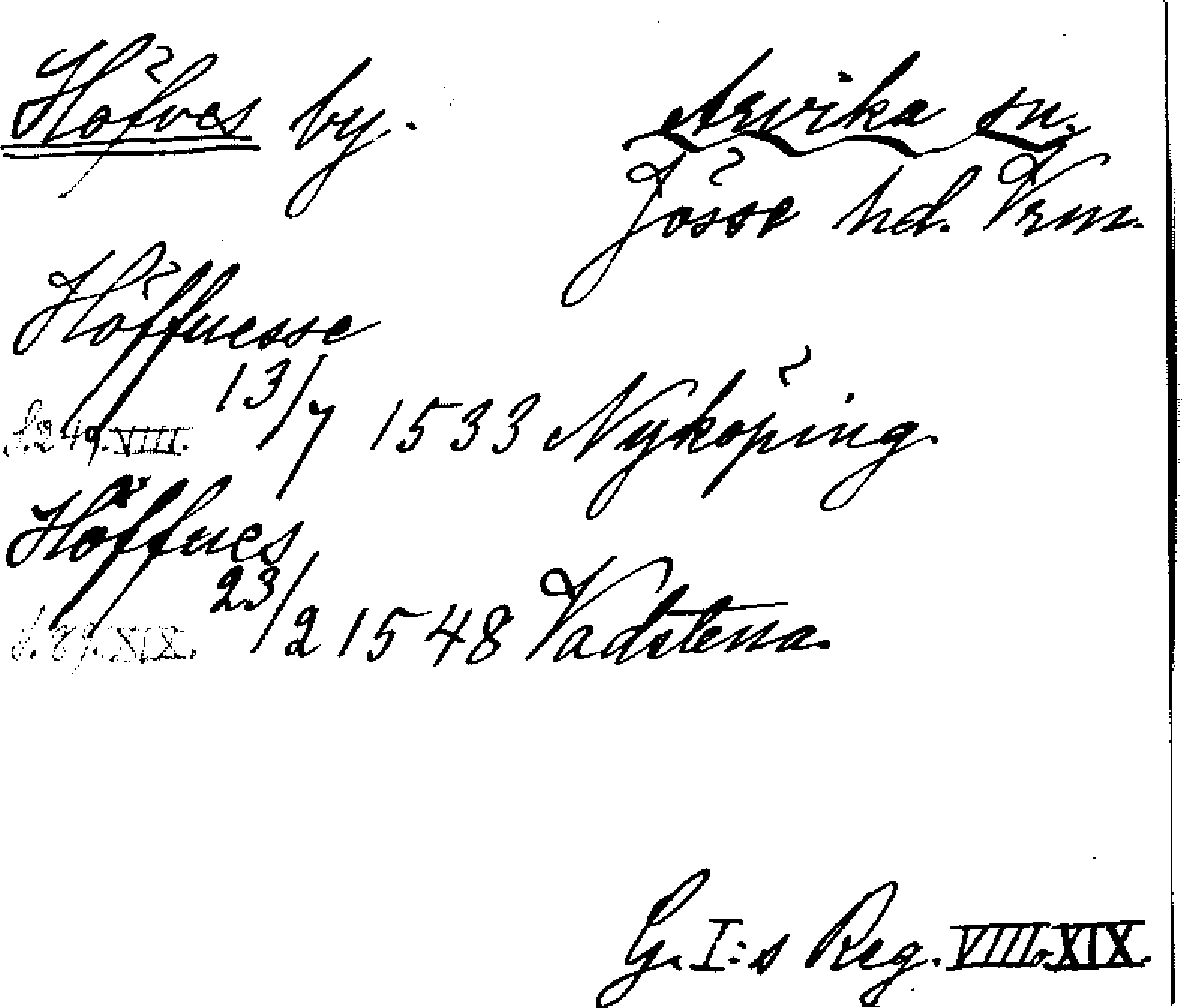 Höfves by. Arvika sn.
Jösse hd. Vrm.
Höffuesse
s. 249. VIII. 13/7 1533 Nyköping.
Höffues
XIX. 23/2 1548 Vadstena.
G. I:s Reg. VIII. XIX.